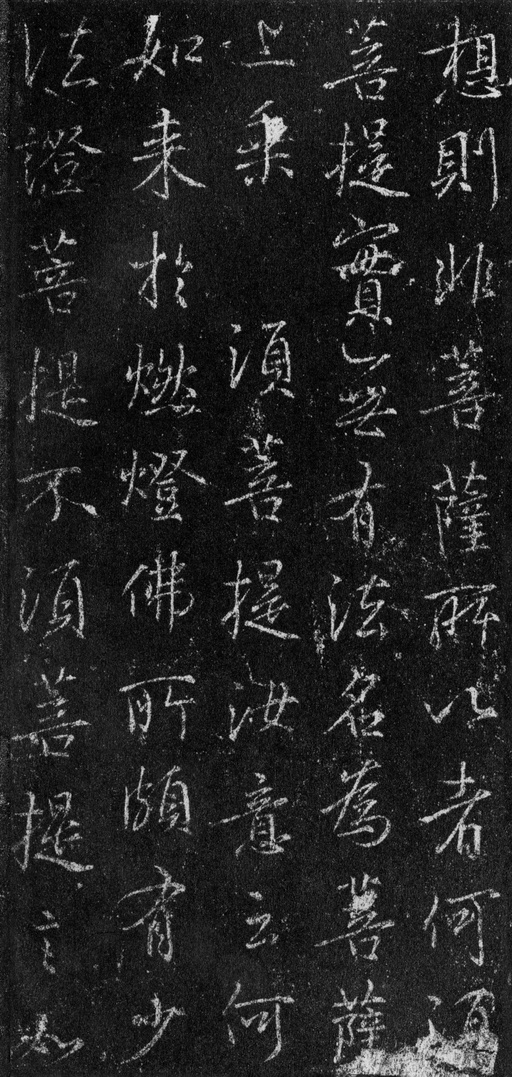 想則非菩薩所以者何須
菩提實無有法名為菩薩
上乘 須菩提汝意云何
如来於燃燈佛所頗有少
法證菩提不須菩提言如